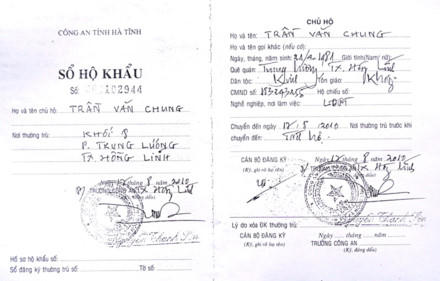 CÔNG AN TỈNH HÀ TĨNH
SỔ HỘ KHẨU
Số: 202944
Họ và tên chủ hộ: TRẦN VĂN CHUNG
Nơi thường trú: KHỐI 8
P. TRUNG LƯƠNG
TX. HỒNG LĨNH
Ngày 12 tháng 8 năm 2010
TRƯỞNG CÔNG AN TX Hồng Lĩnh
Hồ sơ hộ khẩu số:
Sổ đăng ký thường trú số: Tờ số:
CHỦ HỘ
Họ và tên: TRẦN VĂN CHUNG
Họ và tên gọi khác (nếu có):
Ngày, tháng, năm sinh: 1981 Giới tính(Nam/ nữ)
Quê quán: Trung Lương, TX. Hồng Lĩnh
Dân tộc: Kinh Tôn giáo: Không
CMND số: Hộ chiếu số:
Nghề nghiệp, nơi làm việc: LĐTD
Chuyển đến ngày 12/8/2010 Nơi thường trú trước khi
chuyển đến:
Ngày 12 tháng 8 năm 2010
CÁN BỘ ĐĂNG KÝ TRƯỞNG CÔNG AN TX Hồng Lĩnh
(Ký, ghi rõ họ tên)
Lý do xóa ĐK thường trú:
Ngày tháng năm
CÁN BỘ ĐĂNG KÝ TRƯỞNG CÔNG AN
(Ký, ghi rõ họ tên) (Ký, đóng dấu)